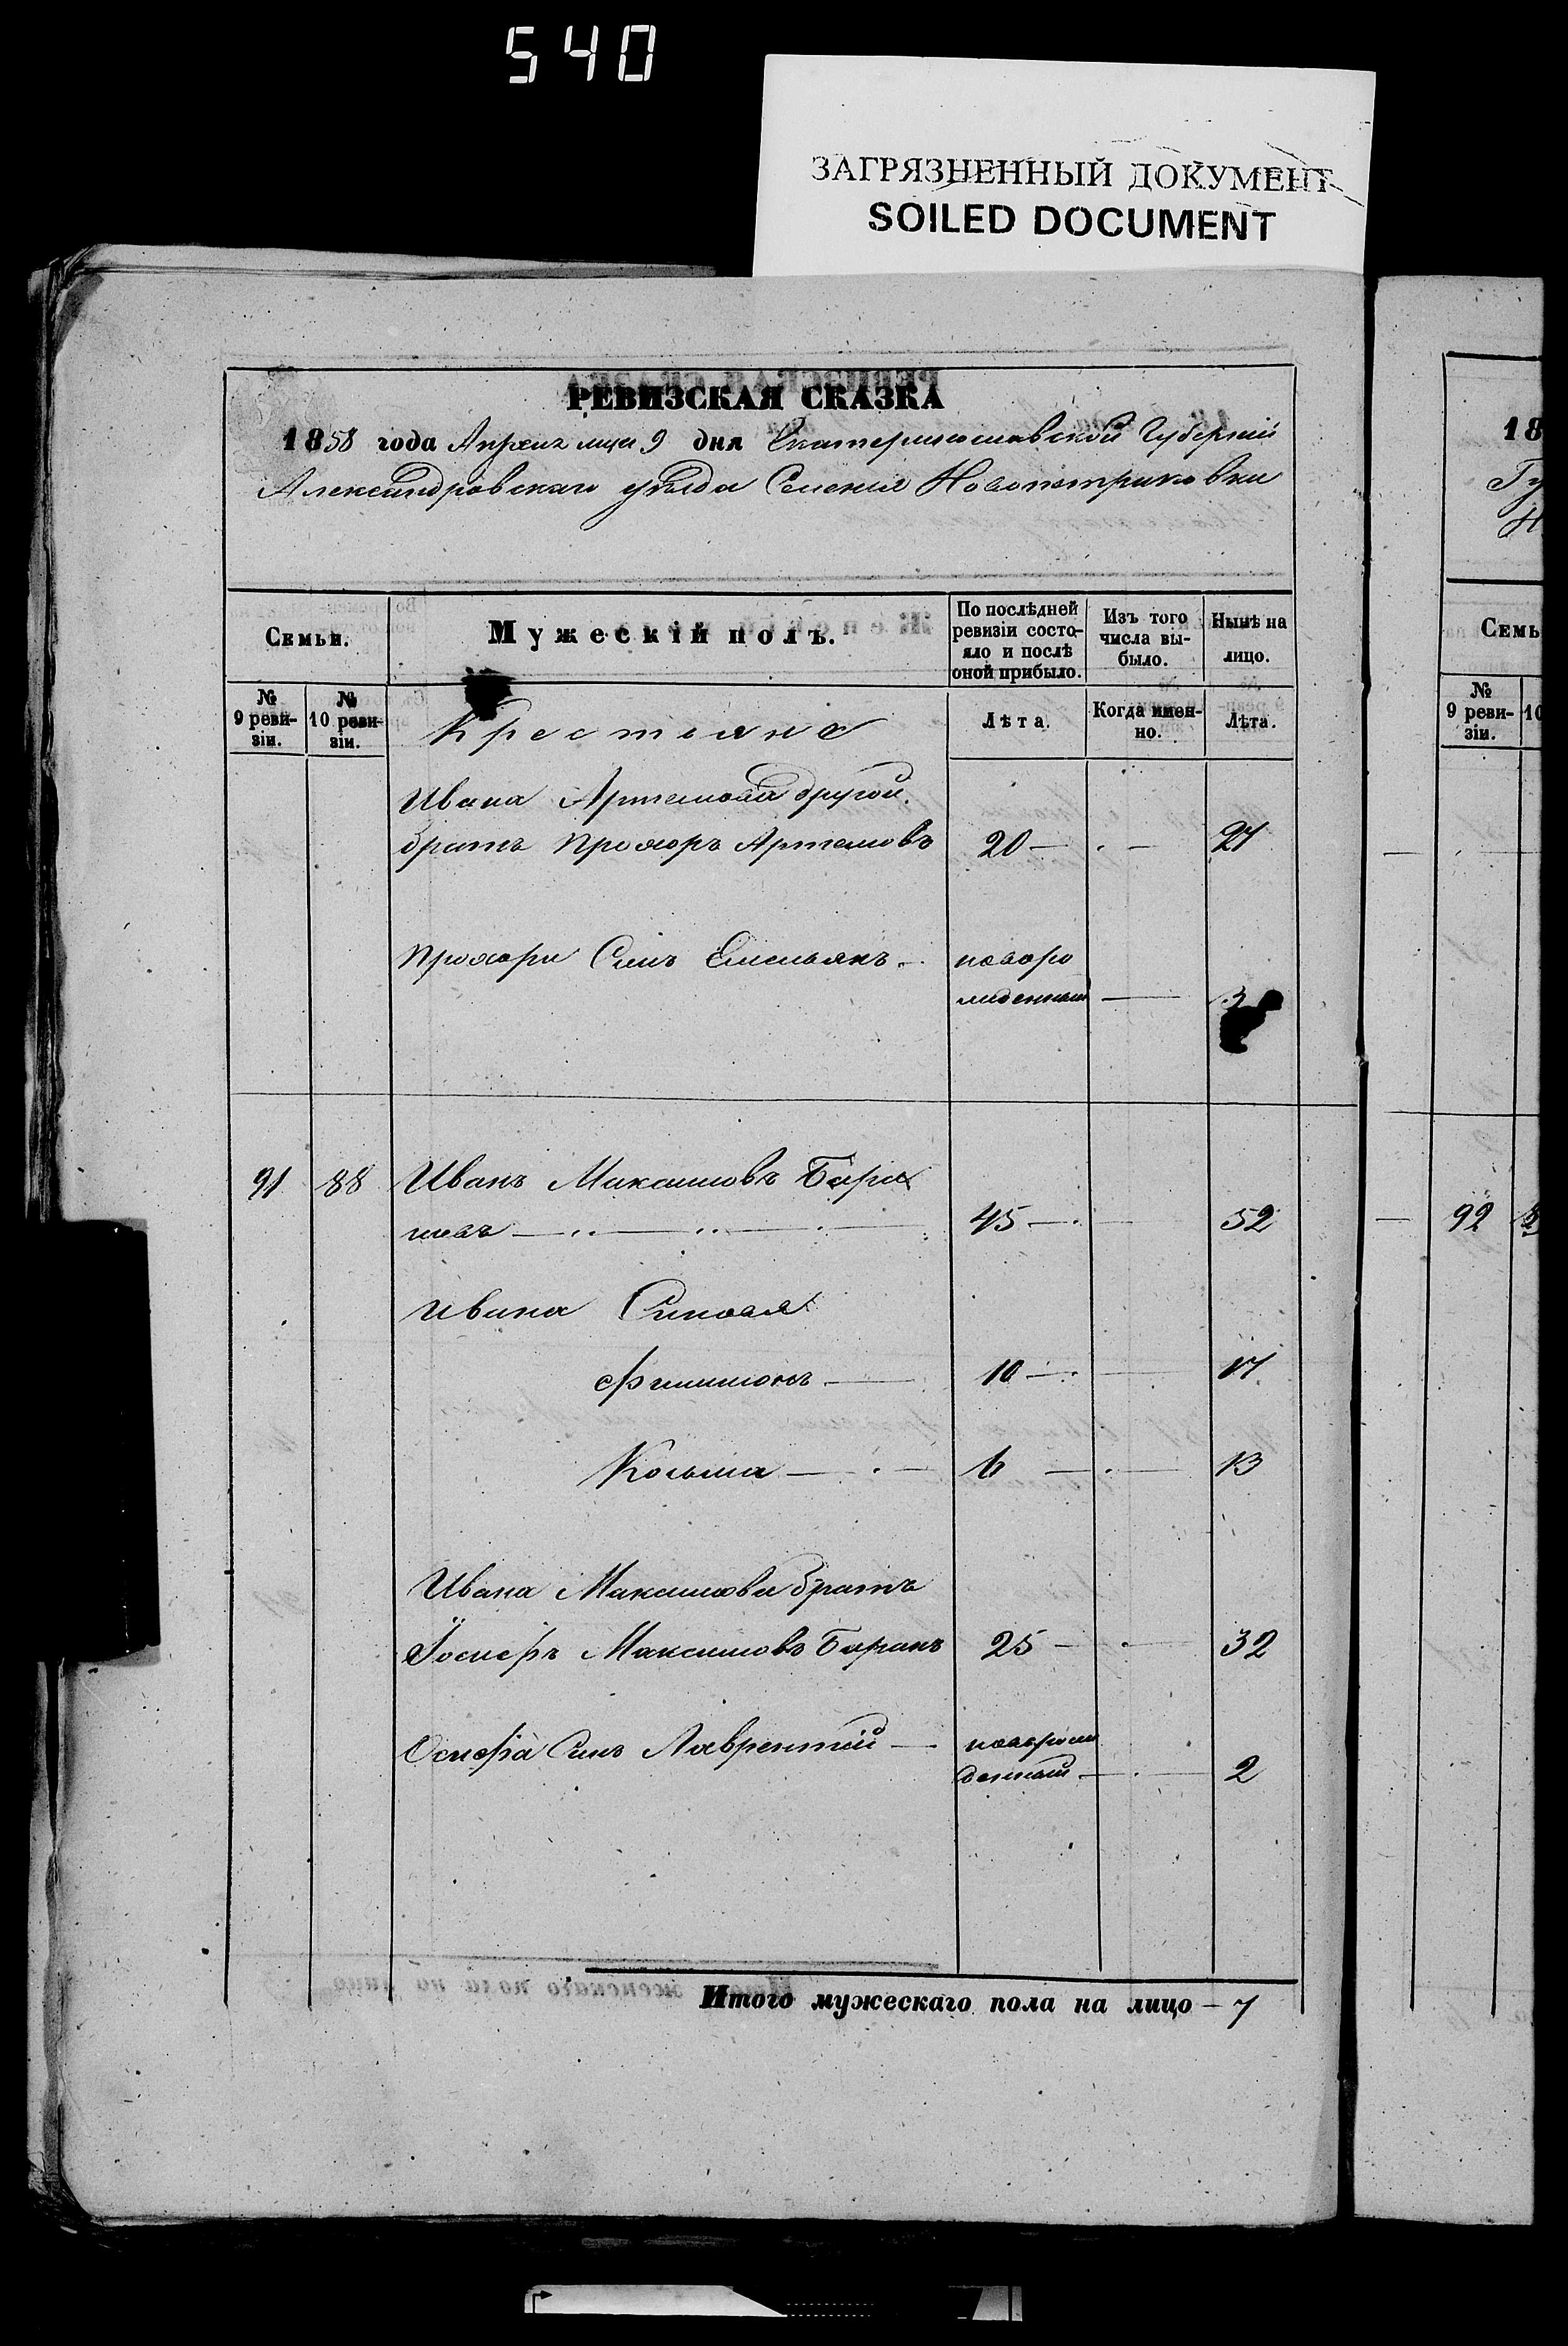 540
ЗАГРЯЗНЕННЫЙ ДОКУМЕНТ
SOILED DOCUMENT
РЕВИЗСКАЯ СКАЗКА
1858 года Апреля мца 9 дня Екатеринославской Губерніи
Александровскаго уѣзда Селенія Новопетриковки
Семьи.
Мужескій полъ.
По послѣдней ревизіи состояло и послѣ оной прибыло.
Изъ того числа выбыло.
Нынѣ на лицо.
№ 9 ревизіи.
№ 10 ревизіи.
Крестьяне
Лѣта.
Когда именно.
Лѣта.
Ивана Артемова другой
братъ Прохоръ Артемовъ 20 — 27
Прохора Синъ Емельянъ — новоро
жденный — 3
91 88 Иванъ Максимовъ Бара
новъ — 45 — 52
Ивана Синовья
Филимонъ — 10 — 17
Козьма — 6 — 13
Ивана Максимова братъ
Іосифъ Максимовъ Баранъ 25 — 32
Осифа Синъ Лаврентій — новорож
денный — 2
Итого мужескаго пола на лицо — 7
18
Семь
№ 9 ревизіи.
10
92